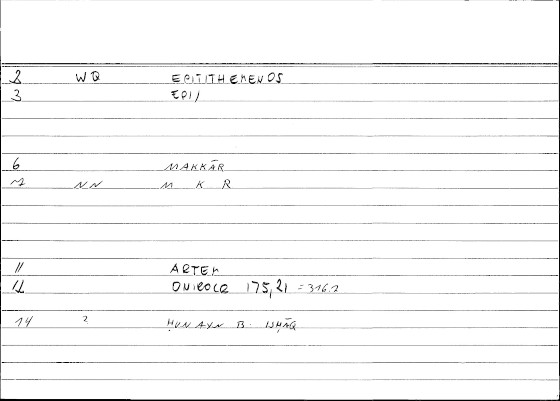 2 WQ EPITITHEMENOS
3 EPI/
6 MAKKĀR
~2 NN M K R
11 ARTEM
12 ONIROCR 175,21 = 316.2
14 2 ḤUNAYN B. ISḤĀQ